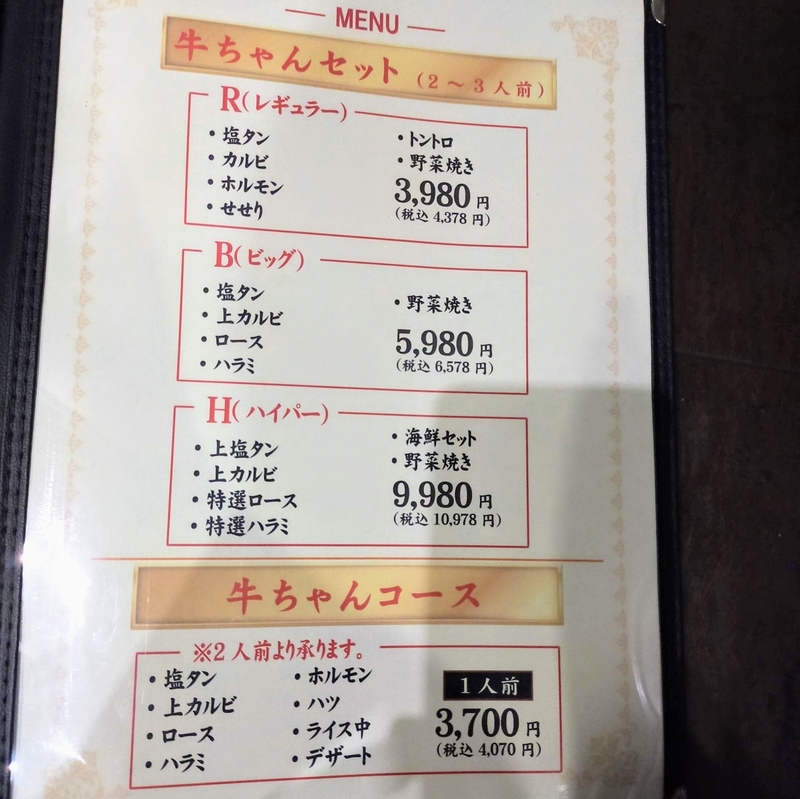 MENU
牛ちゃんセット (2～3人前)
R(レギュラー)
・塩タン
・カルビ
・ホルモン
・せせり
・トントロ
・野菜焼き
3,980円
(税込 4,378 円)
B(ビッグ)
・塩タン
・上カルビ
・ロース
・ハラミ
・野菜焼き
5,980円
(税込 6,578 円)
H(ハイパー)
・上塩タン
・上カルビ
・特選ロース
・特選ハラミ
・海鮮セット
・野菜焼き
9,980円
(税込 10,978 円)
牛ちゃんコース
※2人前より承ります。
・塩タン
・上カルビ
・ロース
・ハラミ
・ホルモン
・ハツ
・ライス中
・デザート
1人前
3,700円
(税込 4,070 円)